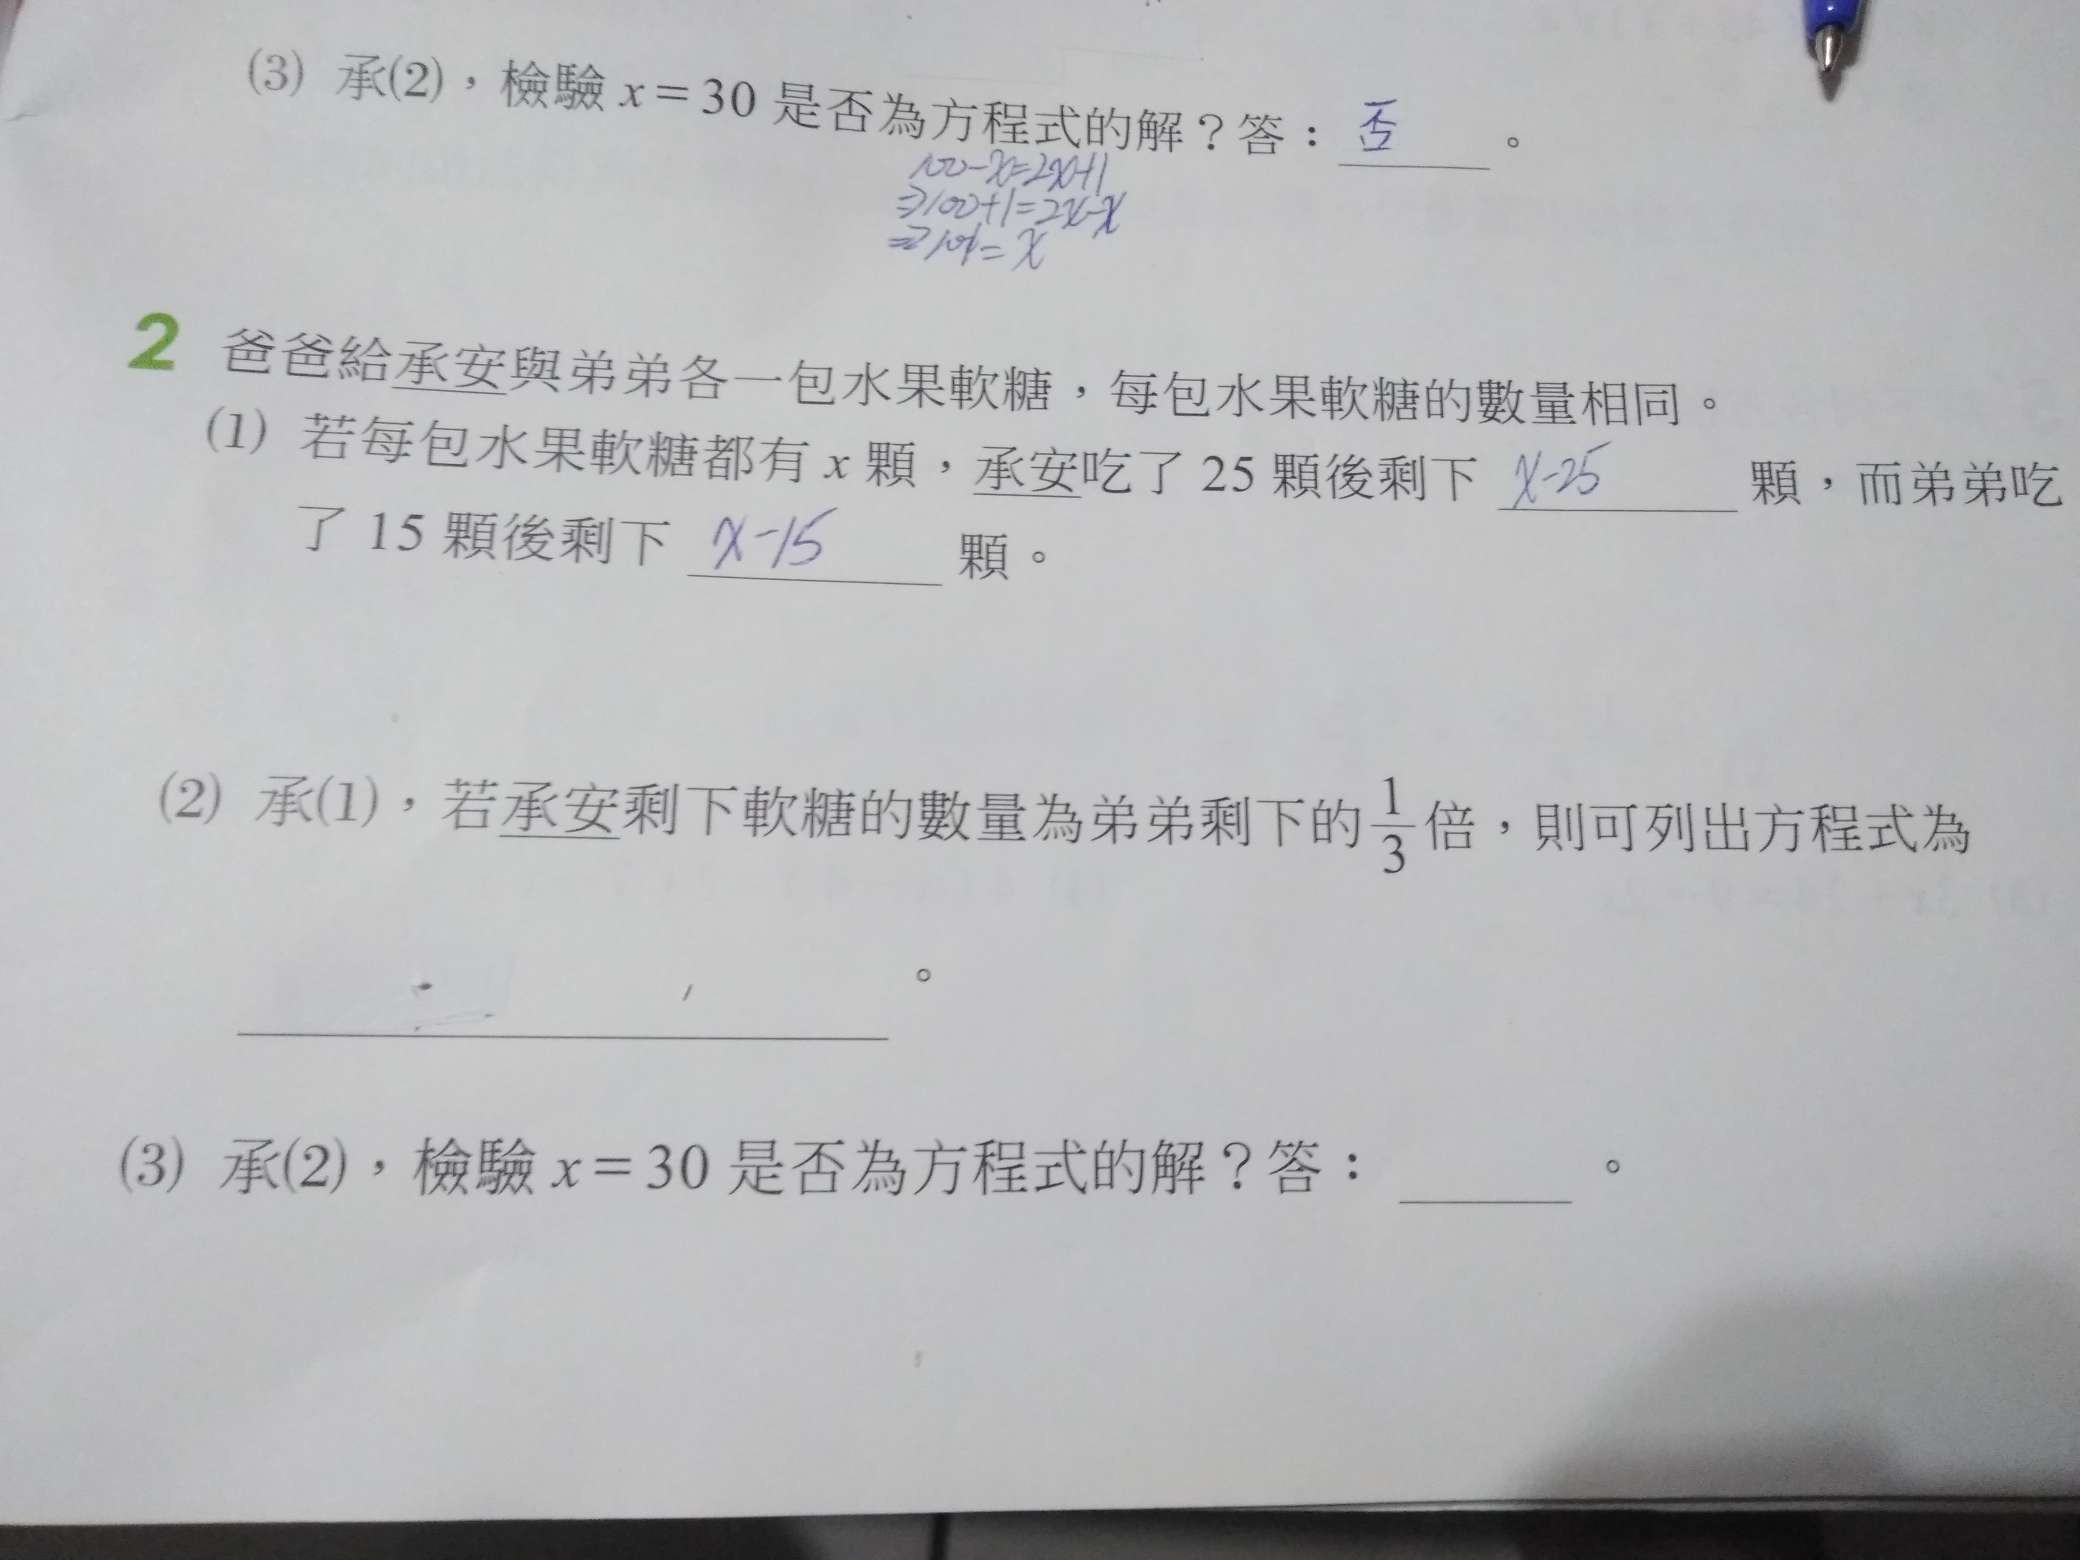 (3) 承(2)，檢驗 x＝30 是否為方程式的解？答：否。
100-x=2x+1
=>100+1=2x-x
=>101=x
2 爸爸給承安與弟弟各一包水果軟糖，每包水果軟糖的數量相同。
(1) 若每包水果軟糖都有 x 顆，承安吃了 25 顆後剩下 x-25 顆，而弟弟吃
了 15 顆後剩下 x-15 顆。
(2) 承(1)，若承安剩下軟糖的數量為弟弟剩下的 1/3 倍，則可列出方程式為
。
(3) 承(2)，檢驗 x＝30 是否為方程式的解？答：。